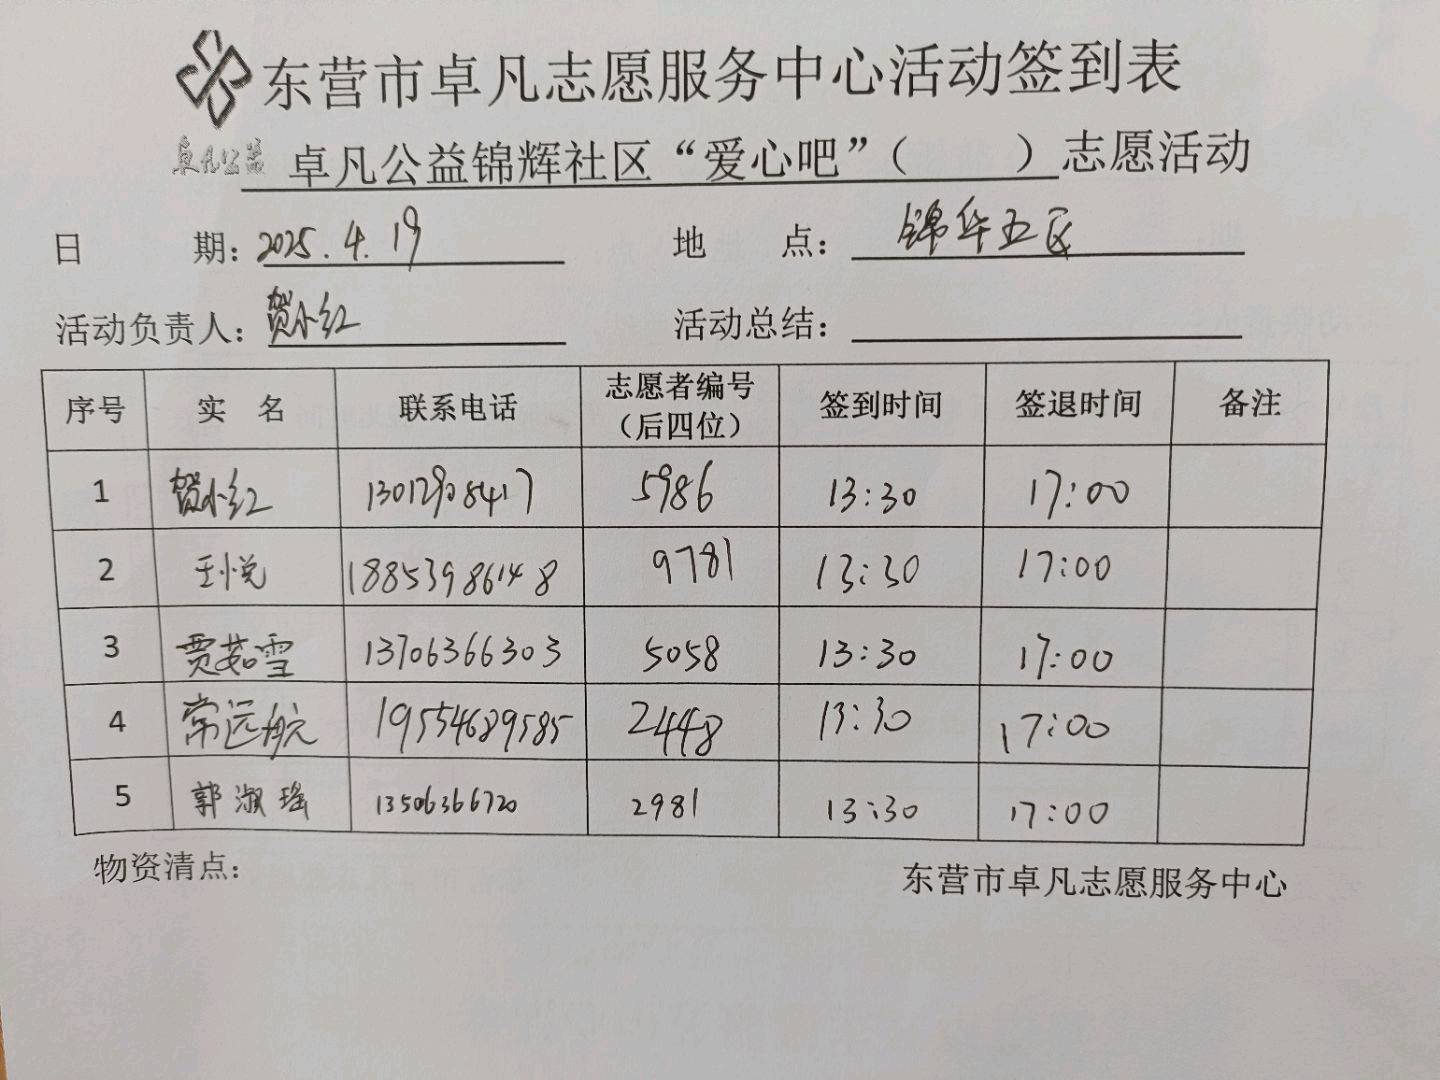 东营市卓凡志愿服务中心活动签到表
卓凡公益 卓凡公益锦辉社区“爱心吧”（ ）志愿活动
日 期：2025.4.19 地 点：锦华五区
活动负责人：贺小红 活动总结：
序号 实 名 联系电话 志愿者编号（后四位） 签到时间 签退时间 备注
1 贺小红 13012908417 5986 13:30 17:00
2 王悦 18853986148 9781 13:30 17:00
3 贾茹雪 13706366303 5058 13:30 17:00
4 常远航 19554689585 2448 13:30 17:00
5 郭淑瑶 13506366720 2981 13:30 17:00
物资清点： 东营市卓凡志愿服务中心